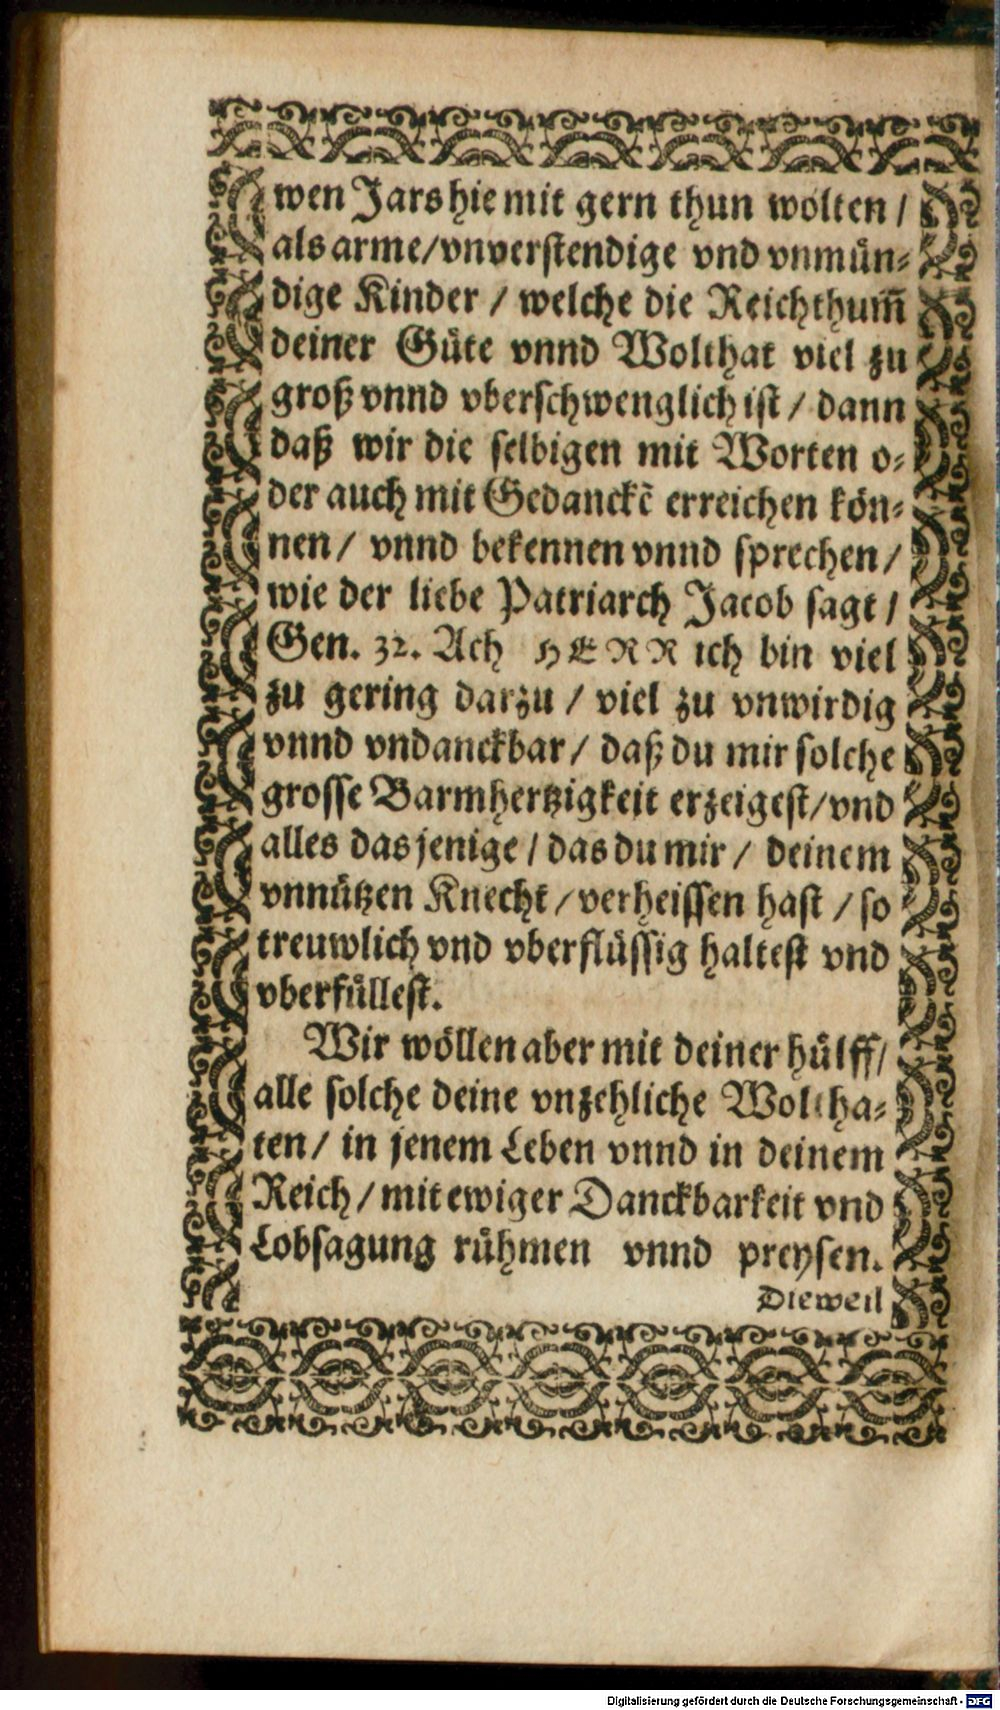 wen Jars hie mit gern thun wolten /
als arme/vnverstendige vnd vnmün-
dige Kinder / welche die Reichthum̃
deiner Güte vnnd Wolthat viel zu
groß vnnd vberschwenglich ist / dann
daß wir die selbigen mit Worten o-
der auch mit Gedanckẽ erreichen kön-
nen / vnnd bekennen vnnd sprechen /
wie der liebe Patriarch Jacob sagt /
Gen. 32. Ach HERR ich bin viel
zu gering darzu / viel zu vnwirdig
vnnd vndanckbar / daß du mir solche
grosse Barmhertzigkeit erzeigest/vnd
alles das jenige / das du mir / deinem
vnnützen Knecht / verheissen hast / so
treuwlich vnd vberflüssig haltest vnd
vberfüllest.
Wir wöllen aber mit deiner hülff/
alle solche deine vnzehliche Woltha-
ten / in jenem Leben vnnd in deinem
Reich / mit ewiger Danckbarkeit vnd
Lobsagung rühmen vnnd preysen.
Dieweil
Digitalisierung gefördert durch die Deutsche Forschungsgemeinschaft - DFG